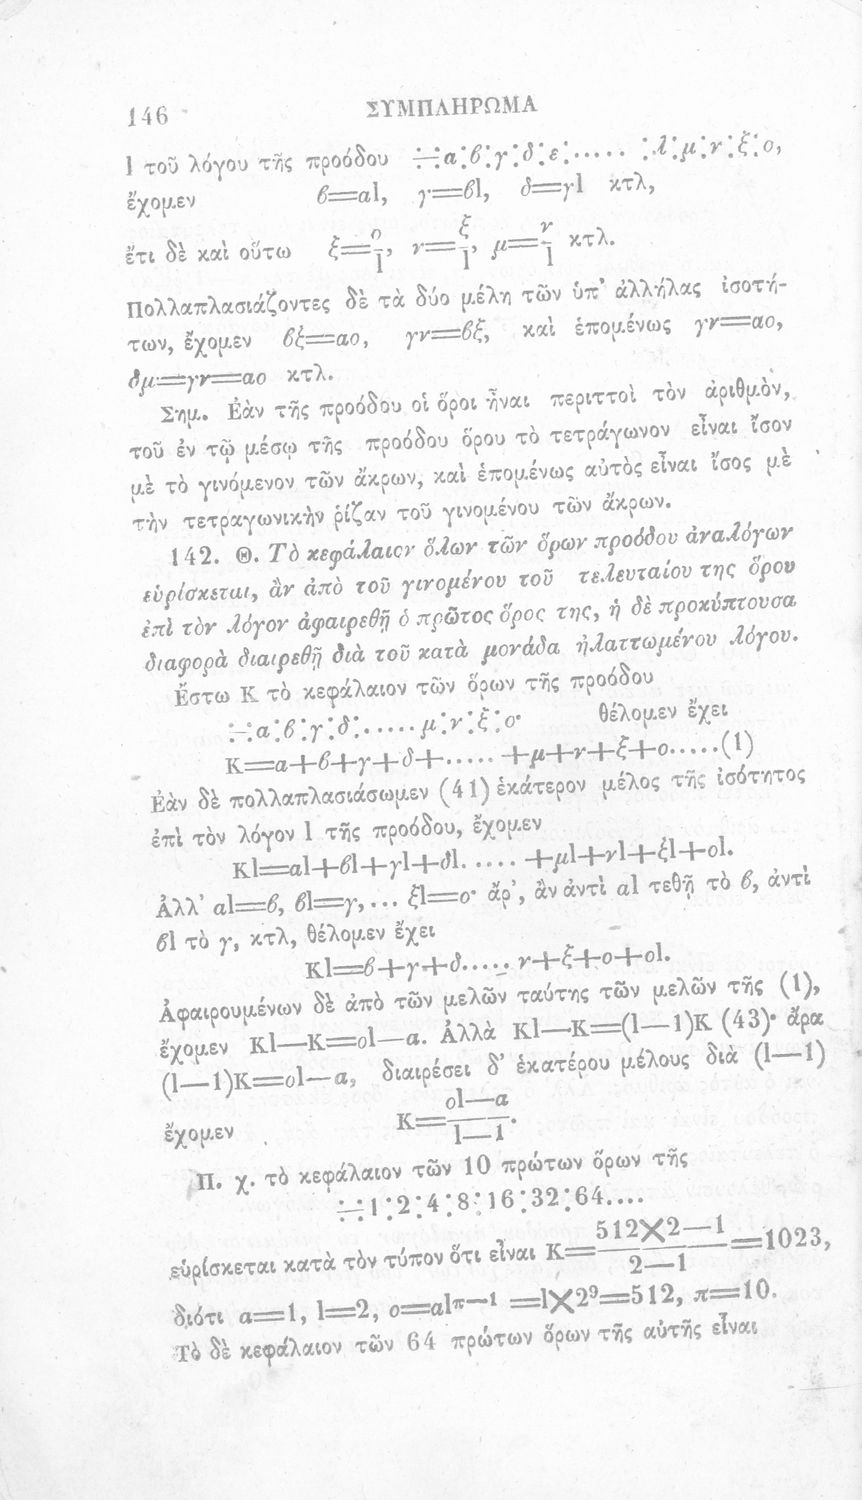 146 ΣΥΜΠΛΗΡΩΜΑ
l τοῦ λόγου τῆς προόδου ∺α:β:γ:δ:ε:..... :λ:μ:ν:ξ:ο,
ἔχομεν β=αl, γ=βl, δ=γl κτλ,
ἔτι δὲ καὶ οὕτω ξ=ο/l, ν=ξ/l, μ=ν/l κτλ.
Πολλαπλασιάζοντες δὲ τὰ δύο μέλη τῶν ὑπ' ἀλλήλας ἰσοτή-
των, ἔχομεν βξ=αο, γν=βξ, καὶ ἑπομένως γν=αο,
δμ=γν=αο κτλ.
Σημ. Ἐὰν τῆς προόδου οἱ ὅροι ἦναι περιττοὶ τὸν ἀριθμὸν,
τοῦ ἐν τῷ μέσῳ τῆς προόδου ὅρου τὸ τετράγωνον εἶναι ἴσον
μὲ τὸ γινόμενον τῶν ἄκρων, καὶ ἑπομένως αὐτὸς εἶναι ἴσος μὲ
τὴν τετραγωνικὴν ῥίζαν τοῦ γινομένου τῶν ἄκρων.
142. Θ. Τὸ κεφάλαιον ὅλων τῶν ὅρων προόδου ἀναλόγων
εὑρίσκεται, ἂν ἀπὸ τοῦ γινομένου τοῦ τελευταίου της ὅρου
ἐπὶ τὸν λόγον ἀφαιρεθῇ ὁ πρῶτος ὅρος της, ἡ δὲ προκύπτουσα
διαφορὰ διαιρεθῇ διὰ τοῦ κατὰ μονάδα ἠλαττωμένου λόγου.
Ἔστω Κ τὸ κεφάλαιον τῶν ὅρων τῆς προόδου
∺α:β:γ:δ:.....μ:ν:ξ:ο· θέλομεν ἔχει
Κ=α+β+γ+δ+..... +μ+ν+ξ+ο.....(1)
Ἐὰν δὲ πολλαπλασιάσωμεν (41) ἑκάτερον μέλος τῆς ἰσότητος
ἐπὶ τὸν λόγον l τῆς προόδου, ἔχομεν
Κl=αl+βl+γl+δl..... +μl+νl+ξl+οl.
Ἀλλ' αl=β, βl=γ,... ξl=ο· ἄρ', ἂν ἀντὶ αl τεθῇ τὸ β, ἀντὶ
βl τὸ γ, κτλ, θέλομεν ἔχει
Κl=β+γ+δ..... ν+ξ+ο+οl.
Ἀφαιρουμένων δὲ ἀπὸ τῶν μελῶν ταύτης τῶν μελῶν τῆς (1),
ἔχομεν Κl—Κ=οl—α. Ἀλλὰ Κl—Κ=(l—1)Κ (43)· ἄρα
(l—1)Κ=οl—α, διαιρέσει δ' ἑκατέρου μέλους διὰ (l—1)
ἔχομεν Κ=(οl—α)/(l—1).
Π. χ. τὸ κεφάλαιον τῶν 10 πρώτων ὅρων τῆς
∺1:2:4:8:16:32:64....
εὑρίσκεται κατὰ τὸν τύπον ὅτι εἶναι Κ=(512×2—1)/(2—1)=1023,
διότι α=1, l=2, ο=αlπ—1 =1×2⁹=512, π=10.
Τὸ δὲ κεφάλαιον τῶν 64 πρώτων ὅρων τῆς αὐτῆς εἶναι